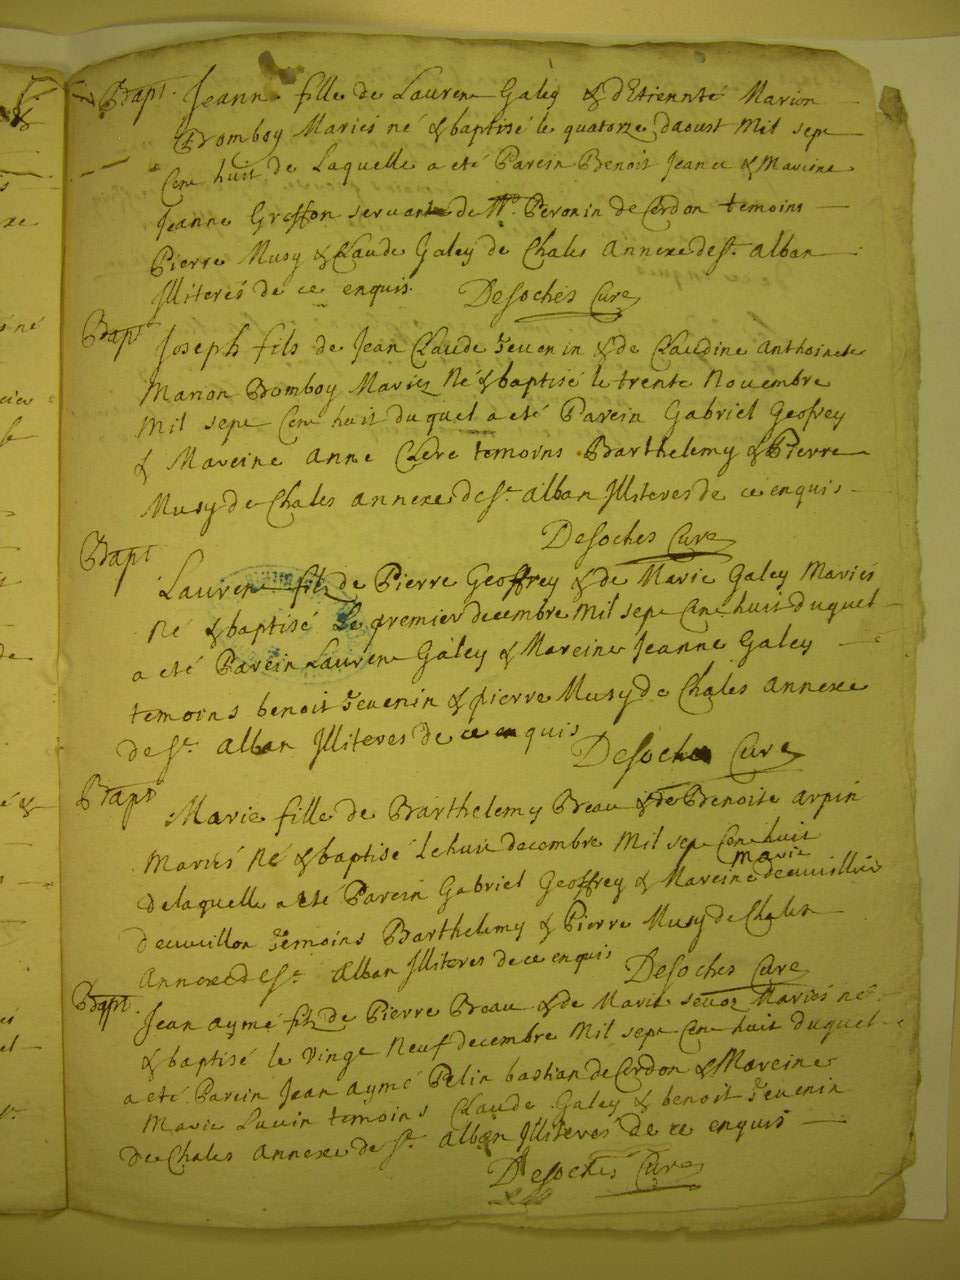 Bapt. Jeanne fille de Laurent Galey & d'Etiennte Marion
Bomboy Mariés né & baptisé le quatorze daoust Mil sept
Cent huit de Laquelle a eté Parein Benoit Jeanet & Mareine
Jeanne Greffon servante de Peronin de Cerdon temoins
Pierre Musy & Claude Galey de Chales Annexe de St. alban
Illiterés de ce enquis. Desoches Curé
Bapt Joseph fils de Jean Claude Tevenin & de Claudine anthoinete
Marion Bomboy Mariez Né & baptisé le trente Novembre
Mil sept Cent huit duquel a eté Parein Gabriel Geofrey
& Mareine Anne Clere temoins Barthelemy & Pierre
Musy de Chales annexe de St. alban Illiteres de ce enquis
Desoches Cure
Bapt
Laurent filz de Pierre Geoffrey & de Marie Galey Mariés
Né & baptisé Le premier decembre Mil sept Cent huit duquel
a eté Parein Laurent Galey & Mareine Jeanne Galey
temoins benoit Tevenin & pierre Musy de Chales annexe
de St. Alban Illiteres de ce enquis Desoches Cure
Bapt
Marie fille de Barthelemy Beau & de Benoite arpin
Mariés Né & baptisé Le huit decembre Mil sept Cent huit
delaquelle a eté Parein Gabriel Geoffrey & Mareine marie
deuvillon Temoins Barthelemy & Pierre Musy de Chales
Annexe de St. Alban Illiteres de ce enquis Desoches Cure
Bapt. Jean aymé filz de Pierre Beau & de Marie Mariés né
& baptisé le vingt Neuf decembre Mil sept Cent huit duquel
a eté Parein Jean aymé Pelin bastian de Cerdon & Mareine
Marie Luvin temoins Claude Galey & benoit Tevenin
de Chales annexe de St. Alban Illiteres de ce enquis
Desoches Cure